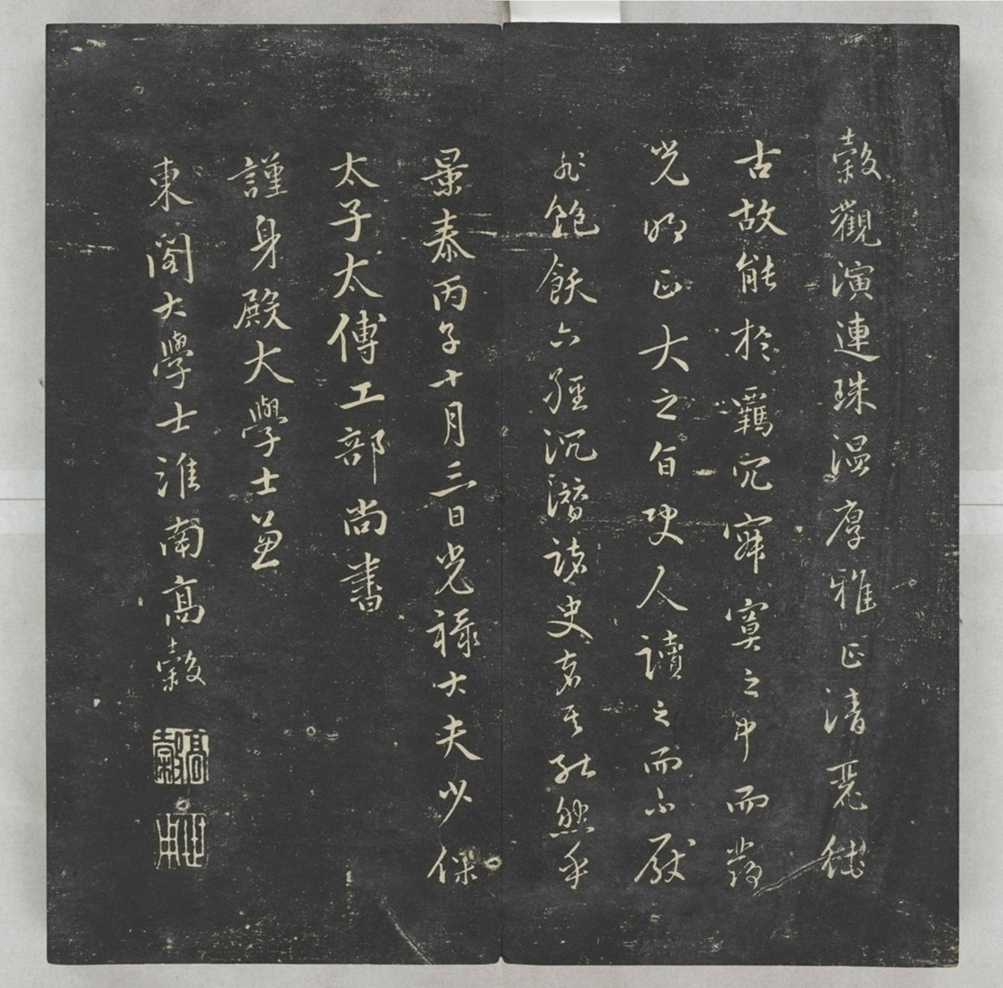 穀觀演連珠溫厚雅正清麗純
古故能於羈冗寂寞之中而發
光明正大之旨使人讀之而不厭
非飽飫六經沉潛諸史者其孰能然乎
景泰丙子十月三日光祿大夫少保
太子太傅工部尚書
謹身殿大學士兼
東閣大學士淮南高穀
高穀